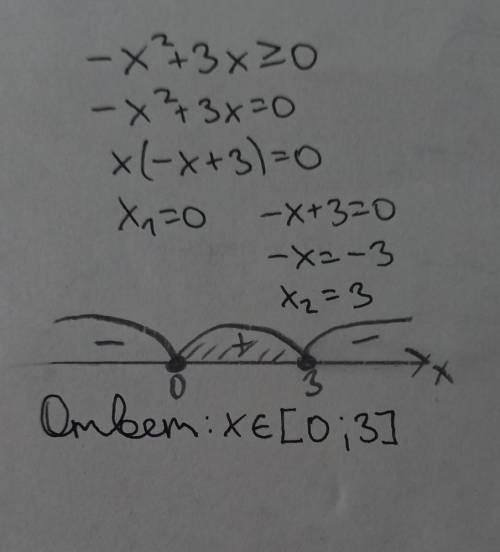 -x²+3x≥0
-x²+3x=0
x(-x+3)=0
x₁=0 -x+3=0
-x=-3
x₂=3
- + -
0 3 x
Ответ: x∈[0;3]